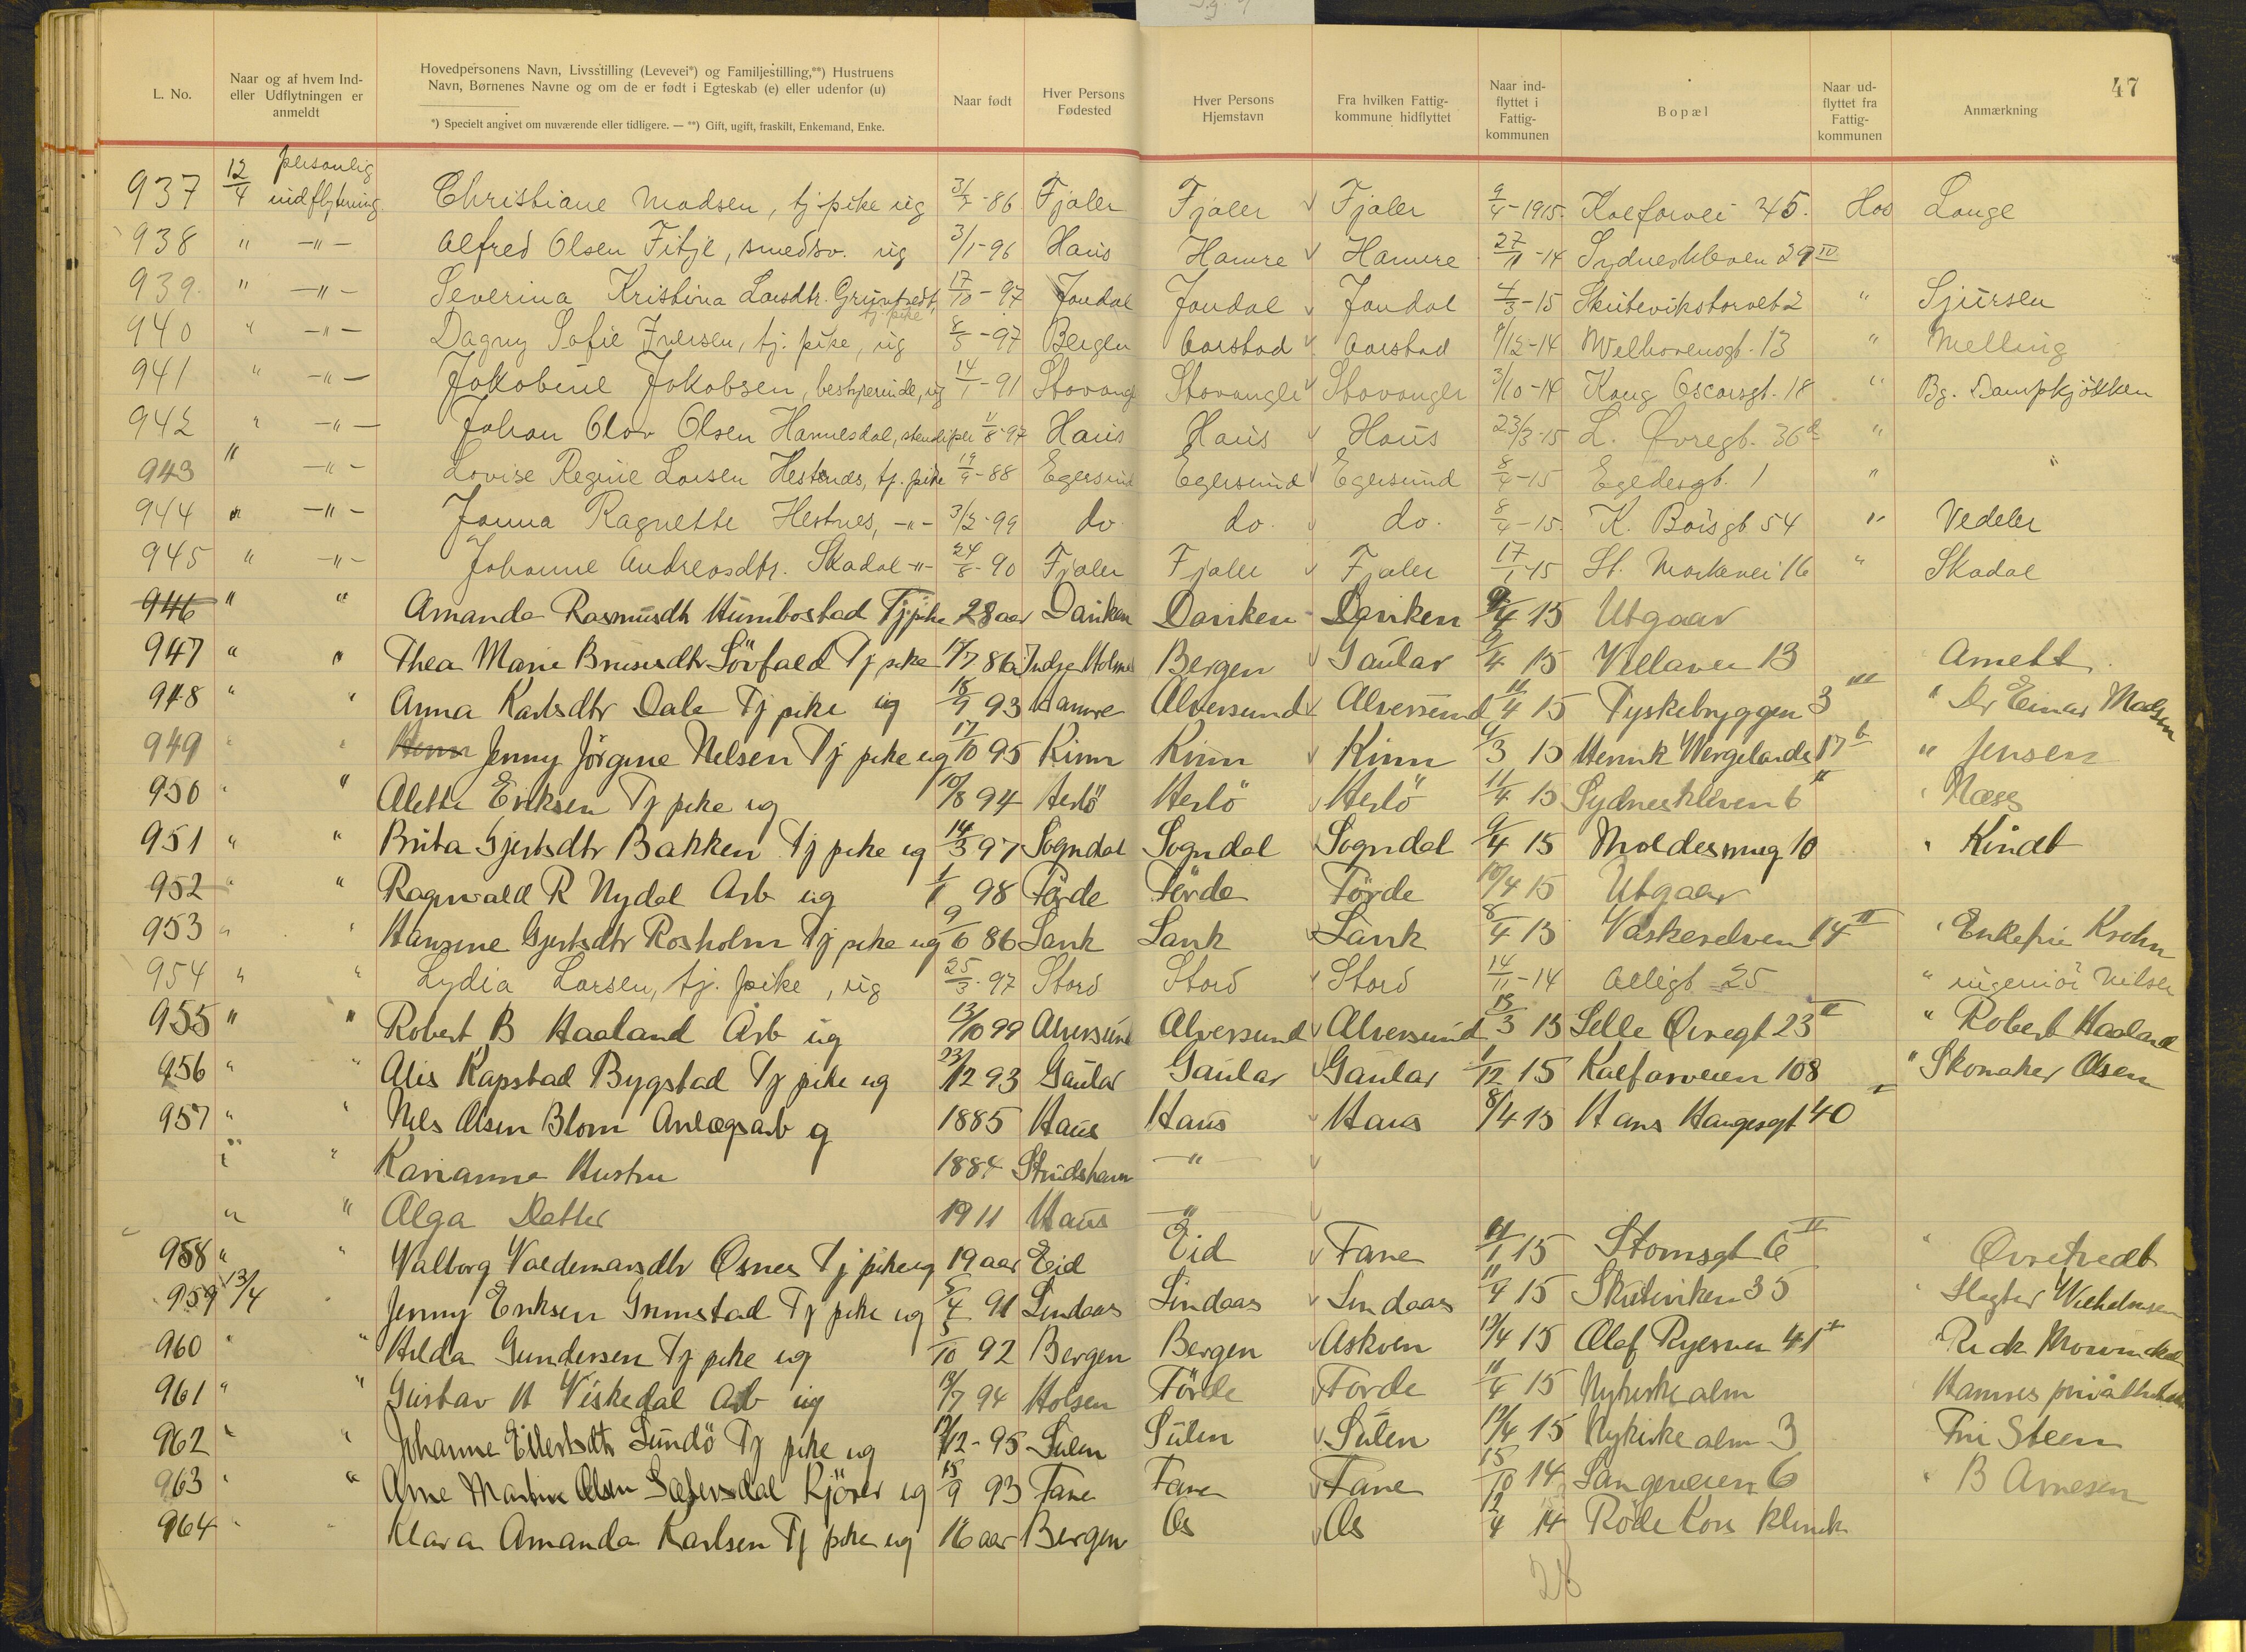 47
L. No.
Naar og af hvem Ind- eller Udflytningen er anmeldt
Hovedpersonens Navn, Livsstilling (Levevei*) og Familjestilling,**) Hustruens Navn, Børnenes Navne og om de er født i Egteskab (e) eller udenfor (u)
*) Specielt angivet om nuværende eller tidligere. — **) Gift, ugift, fraskilt, Enkemand, Enke.
Naar født
Hver Persons Fødested
Hver Persons Hjemstavn
Fra hvilken Fattig- kommune hidflyttet
Naar ind- flyttet i Fattig- kommunen
Bopæl
Naar ud- flyttet fra Fattig- kommunen
Anmærkning
937 12/4 personlig indflytning Christiane Madsen, tj. pike ug 3/7-86 Fjaler Fjaler Fjaler 9/4-1915. Kalfarvei 45. Hos Lange
938 " -"- Alfred Olsen Fitje, smedsv. ug 3/1-96 Haus Hamre Hamre 27/11-14 Sydneskleven 29 IV
939. " -"- Severina Kristina Larsdtr. tj. pike 17/10-97 Jondal Jondal Jondal 4/3-15 Skutevikstorvet 2 " Sjursen
940 " -"- Dagny Sofie Iversen, tj. pike, ug 8/5-97 Bergen Aarstad Aarstad /12-14 Welhavensgt. 13 " Melling
941 " -"- Jakobine Jakobsen, bestyrerinde, ug 14/1-91 Stavanger Stavanger Stavanger 3/10-14 Kong Oscarsgt. 18 " Bg. Dampkjøkken
942 " -"- Johan Olav Olsen Hannesdal, 11/8-97 Haus Haus Haus 23/3-15 L. Øvregt. 36 "
943 " -"- Lovise Regine Larsen Hestnes, tj. pike 19/9-88 Egersund Egersund Egersund 8/4-15 Egedesgt. 1 " "
944 " -"- Janna Ragnette Hestnes, -"- 3/2-99 do. do. do. 8/4-15. K. Boisgt 54 " Vedeler
945 " -"- Johanne Andreasdtr. Skadal -"- 24/8-90 Fjaler Fjaler Fjaler 17/1-15 St. Markevei 16 " Skadal
946 " " Amanda Rasmusdtr Humbostad Tj pike 28 aar Daviken Daviken Daviken 9/4 15 Utgaar
947 " " Thea Marie Tj pike 17/7 86 Indre Holme Bergen Gaular 9/4 15 Villaveien 13 Amelt
948 " " Anna Karlsdtr Dale Tj pike ug 18/9 93 Hamre Alversund Alversund 11/4 15 Tyskebryggen 3 III " Dr Einar Madsen
949 " " Jenny Jörgine Nelsen Tj pike ug 17/10 95 Kinn Kinn Kinn 9/3 15 Henrik Wergelands 17 b " Jensen
950 " " Alette Eriksen Tj pike ug 10/8 94 Herlö Herlö Herlö 11/4 15 Sydneskleven 6 II " Næss
951 " " Brita Gjertsdtr Bakken Tj pike ug 14/3 97 Sogndal Sogndal Sogndal 9/4 15 Moldesmug 10 " Kindt
952 " " Ragnvald R Nydal Arb ug 1/1 98 Förde Förde Förde 10/4 15 Utgaar
953 " " Hansine Gjertsdtr Rosholm Tj pike ug 9/6 86 Lank Lank Lank 8/4 15 Vaskerelven 14 II " Enkefru Krohn
954 " " Lydia Larsen, tj. pike, ug 25/3-97 Stord Stord Stord 14/11-14 Allégt 25 " ingeniör Nilsen
955 " " Robert B Haaland Arb ug 13/10 99 Alversund Alversund Alversund 13/3 15 Lille Øvregt 23 II " Robert Haaland
956 " " Alis Kapstad Bygstad Tj pike ug 23/12 93 Gaular Gaular Gaular 1/12 15 Kalfarveien 108 " Skomaker Olsen
957 " " Nils Olsen Blom Anlægsarb g 1885 Haus Haus Haus 8/4 15 Hans Haugesgt 40 I
" " Karianne Hustru 1884 "
" " Alga Datter 1911 Haus "
958 " " Valborg Valdemarsdtr Osnes Tj pike ug 19 aar Eid Eid Fane 11/1 15 Stomsgt 6 II " Øvretvedt
959 13/4 " Jenny Eriksen Grimstad Tj pike ug 5/4 91 Lindaas Lindaas Lindaas 11/4 15 Skuteviken 35 " Slagter Wilhelmsen
960 " " Hilda Gundersen Tj pike ug 5/10 92 Bergen Bergen Askvoen 12/4 15 Olaf Ryesvei 41 I " Mowinckel
961 " " Gustav H Viskedal Arb ug 18/7 94 Holsen Förde Förde 11/4 15 Nykirke alm Hannes
962 " " Johanne Eilertsdtr Sundö Tj pike ug /12-95 Sulen Sulen Sulen 12/4 15 Nykirke alm 3 Fru Steen
963 " " Arne Martin Olsen Kjörer ug 15/9 93 Fane Fane Fane 15/10 14 Langeveien 6 " B Arnesen
964 " " Klara Amanda Karlsen Tj pike ug 16 aar Bergen Os Os 12/4 14 Röde Kors klinik
28